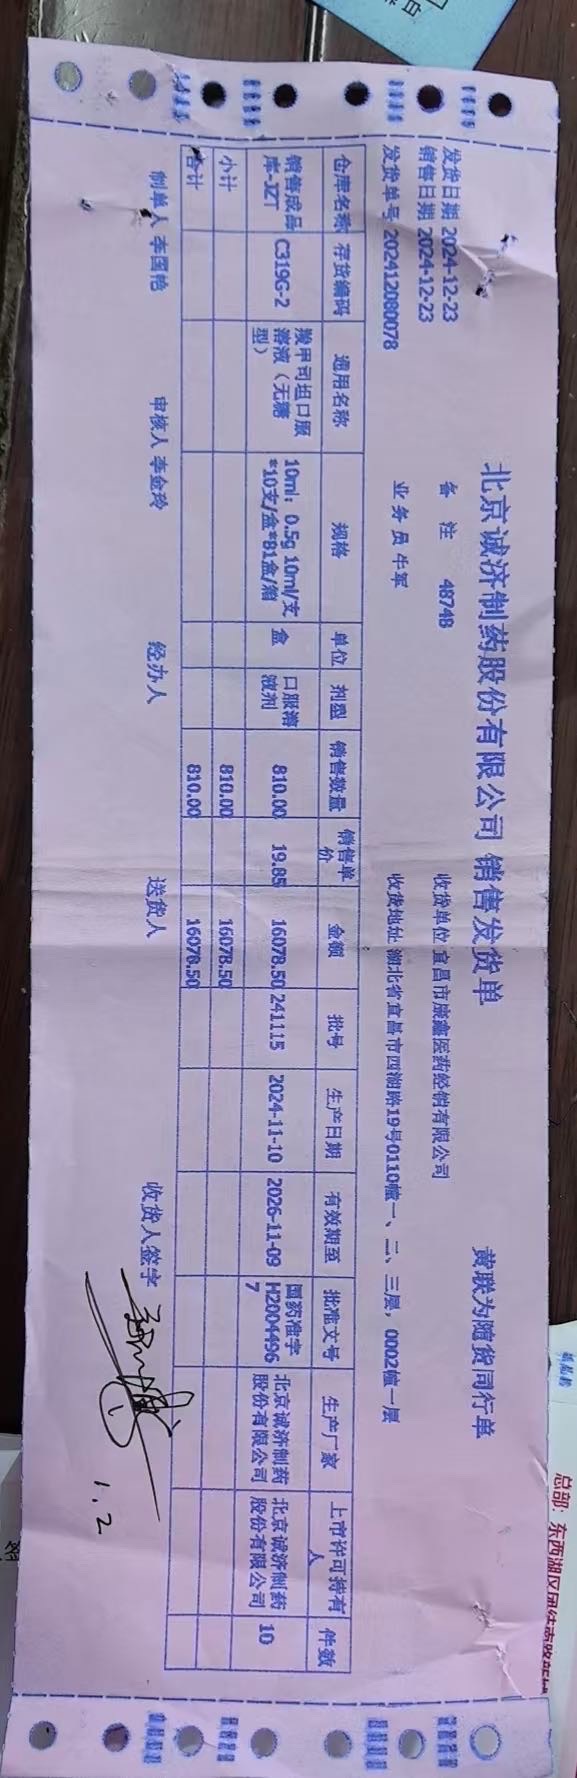 北京诚济制药股份有限公司 销售发货单
黄联为随货同行单
发货日期 2024-12-23 备 注 48748 收货单位 宜昌市康鑫医药经销有限公司
销售日期 2024-12-23
发货单号 202412080078 业 务 员 牛军 收货地址 湖北省宜昌市西湖路19号0110幢一、二、三层，0002幢一层
仓库名称 存货编码 通用名称 规格 单位 剂型 销售数量 销售单价 金额 批号 生产日期 有效期至 批准文号 生产厂家 上市许可持有人 件数
销售成品库-JZT C319G-2 羧甲司坦口服溶液（无糖型） 10ml：0.5g 10ml/支*10支/盒*81盒/箱 盒 口服溶液剂 810.00 19.85 16078.50 241115 2024-11-10 2026-11-09 国药准字H20044967 北京诚济制药股份有限公司 北京诚济制药股份有限公司 10
小计 810.00 16078.50
合计 810.00 16078.50
制单人 李国艳 审核人 李金玲 经办人 送货人 收货人签字
1.2
总部：东西湖区